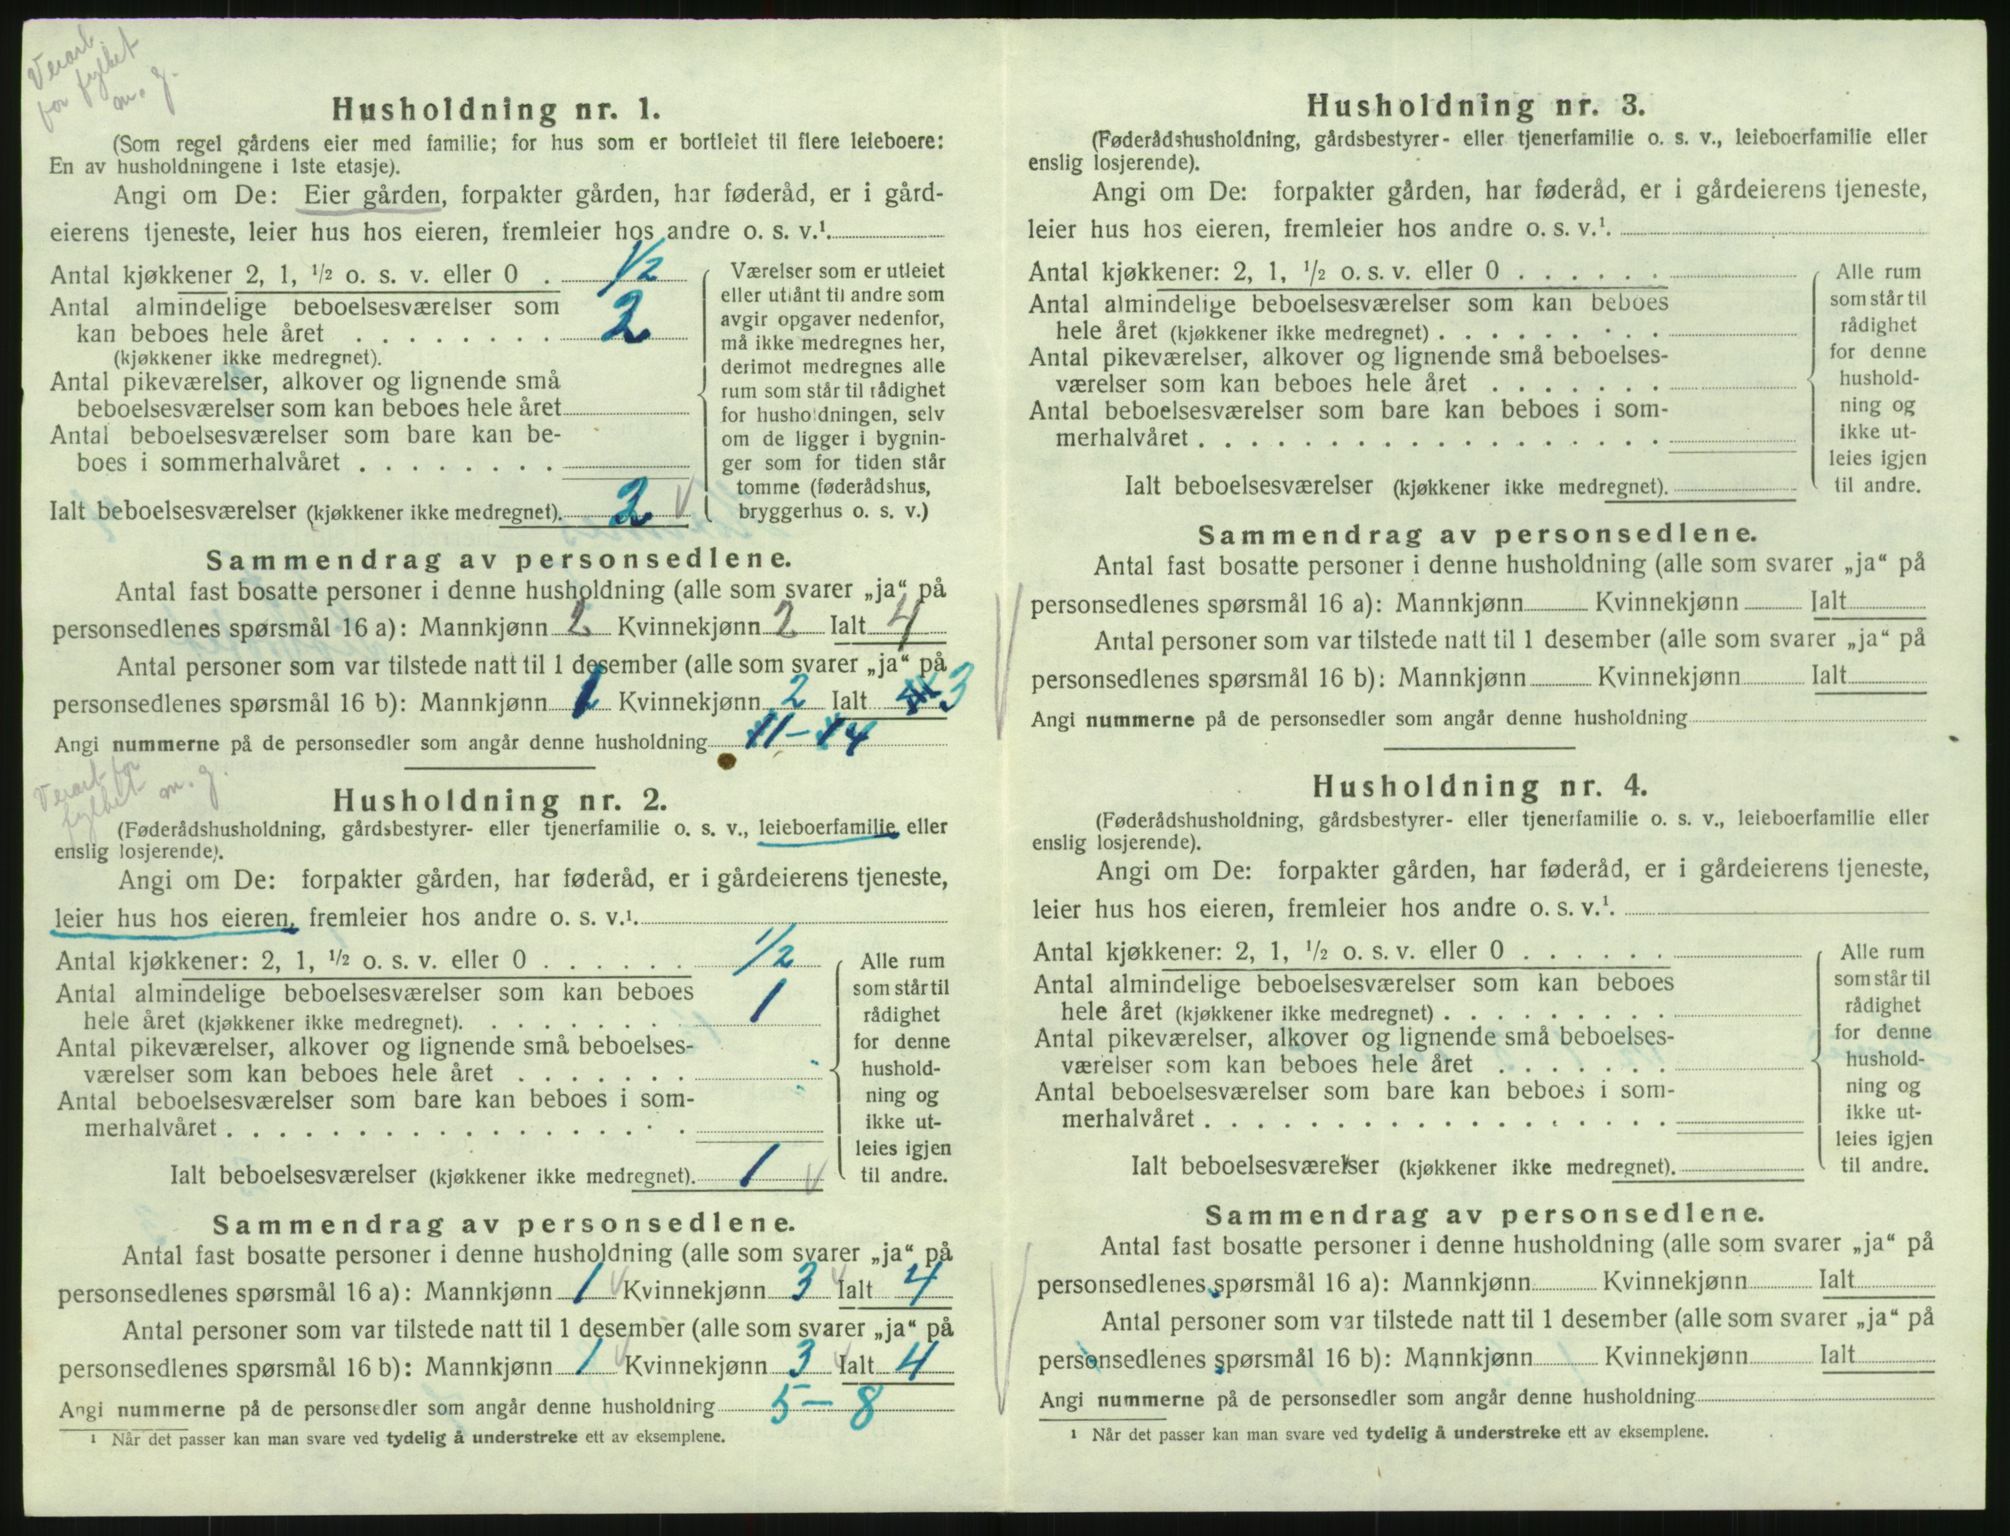 Verarb.
for fylket
m. g.
Husholdning nr. 1.
(Som regel gårdens eier med familie; for hus som er bortleiet til flere leieboere:
En av husholdningene i 1ste etasje).
Angi om De: Eier gården, forpakter gården, har føderåd, er i gård-
eierens tjeneste, leier hus hos eieren, fremleier hos andre o. s. v.¹.
Antal kjøkkener 2, 1, ½ o. s. v. eller 0 . ½
Antal almindelige beboelsesværelser som
kan beboes hele året . . . . . . . . 2
(kjøkkener ikke medregnet).
Antal pikeværelser, alkover og lignende små
beboelsesværelser som kan beboes hele året
Antal beboelsesværelser som bare kan be-
boes i sommerhalvåret . . . . . . . .
Ialt beboelsesværelser (kjøkkener ikke medregnet). 2
Værelser som er utleiet
eller utlånt til andre som
avgir opgaver nedenfor,
må ikke medregnes her,
derimot medregnes alle
rum som står til rådighet
for husholdningen, selv
om de ligger i bygnin-
ger som for tiden står
tomme (føderådshus,
bryggerhus o. s. v.)
Sammendrag av personsedlene.
Antal fast bosatte personer i denne husholdning (alle som svarer „ja“ på
personsedlenes spørsmål 16 a): Mannkjønn 2 Kvinnekjønn 2 Ialt 4
Antal personer som var tilstede natt til 1 desember (alle som svarer „ja“ på
personsedlenes spørsmål 16 b): Mannkjønn 1 Kvinnekjønn 2 Ialt 3
Angi nummerne på de personsedler som angår denne husholdning 11 – 14
Verarb. for
fylket m. g.
Husholdning nr. 2.
(Føderådshusholdning, gårdsbestyrer- eller tjenerfamilie o. s. v., leieboerfamilie eller
enslig losjerende).
Angi om De: forpakter gården, har føderåd, er i gårdeierens tjeneste,
leier hus hos eieren, fremleier hos andre o. s. v.¹.
Antal kjøkkener: 2, 1, ½ o. s. v. eller 0 . . . . . . ½
Antal almindelige beboelsesværelser som kan beboes
hele året (kjøkkener ikke medregnet). . . . . . . . . 1
Antal pikeværelser, alkover og lignende små beboelses-
værelser som kan beboes hele året . . . . . . .
Antal beboelsesværelser som bare kan beboes i som-
merhalvåret . . . . . . . . . . . . . . . . .
Ialt beboelsesværelser (kjøkkener ikke medregnet). 1
Alle rum
som står til
rådighet
for denne
hushold-
ning og
ikke ut-
leies igjen
til andre.
Sammendrag av personsedlene.
Antal fast bosatte personer i denne husholdning (alle som svarer „ja“ på
personsedlenes spørsmål 16 a): Mannkjønn 1 Kvinnekjønn 3 Ialt 4
Antal personer som var tilstede natt til 1 desember (alle som svarer „ja“ på
personsedlenes spørsmål 16 b): Mannkjønn 1 Kvinnekjønn 3 Ialt 4
Angi nummerne på de personsedler som angår denne husholdning 5 – 8
¹ Når det passer kan man svare ved tydelig å understreke ett av eksemplene.
Husholdning nr. 3.
(Føderådshusholdning, gårdsbestyrer- eller tjenerfamilie o. s. v., leieboerfamilie eller
enslig losjerende).
Angi om De: forpakter gården, har føderåd, er i gårdeierens tjeneste,
leier hus hos eieren, fremleier hos andre o. s. v.¹.
Antal kjøkkener: 2, 1, ½ o. s. v. eller 0 . . . . . .
Antal almindelige beboelsesværelser som kan beboes
hele året (kjøkkener ikke medregnet) . . . . . . . . .
Antal pikeværelser, alkover og lignende små beboelses-
værelser som kan beboes hele året . . . . . . .
Antal beboelsesværelser som bare kan beboes i som-
merhalvåret . . . . . . . . . . . . . . . . . .
Ialt beboelsesværelser (kjøkkener ikke medregnet).
Alle rum
som står til
rådighet
for denne
hushold-
ning og
ikke ut-
leies igjen
til andre.
Sammendrag av personsedlene.
Antal fast bosatte personer i denne husholdning (alle som svarer „ja“ på
personsedlenes spørsmål 16 a): Mannkjønn Kvinnekjønn Ialt
Antal personer som var tilstede natt til 1 desember (alle som svarer „ja“ på
personsedlenes spørsmål 16 b): Mannkjønn Kvinnekjønn Ialt
Angi nummerne på de personsedler som angår denne husholdning
Husholdning nr. 4.
(Føderådshusholdning, gårdsbestyrer- eller tjenerfamilie o. s. v., leieboerfamilie eller
enslig losjerende).
Angi om De: forpakter gården, har føderåd, er i gårdeierens tjeneste,
leier hus hos eieren, fremleier hos andre o. s. v.¹.
Antal kjøkkener: 2, 1, ½ o. s. v. eller 0 . . . . . .
Antal almindelige beboelsesværelser som kan beboes
hele året (kjøkkener ikke medregnet) . . . . . . . . .
Antal pikeværelser, alkover og lignende små beboelses-
værelser som kan beboes hele året . . . . . . .
Antal beboelsesværelser som bare kan beboes i som-
merhalvåret . . . . . . . . . . . . . . . . . .
Ialt beboelsesværelser (kjøkkener ikke medregnet).
Alle rum
som står til
rådighet
for denne
hushold-
ning og
ikke ut-
leies igjen
til andre.
Sammendrag av personsedlene.
Antal fast bosatte personer i denne husholdning (alle som svarer „ja“ på
personsedlenes spørsmål 16 a): Mannkjønn Kvinnekjønn Ialt
Antal personer som var tilstede natt til 1 desember (alle som svarer „ja“ på
personsedlenes spørsmål 16 b): Mannkjønn Kvinnekjønn Ialt
Angi nummerne på de personsedler som angår denne husholdning
¹ Når det passer kan man svare ved tydelig å understreke ett av eksemplene.